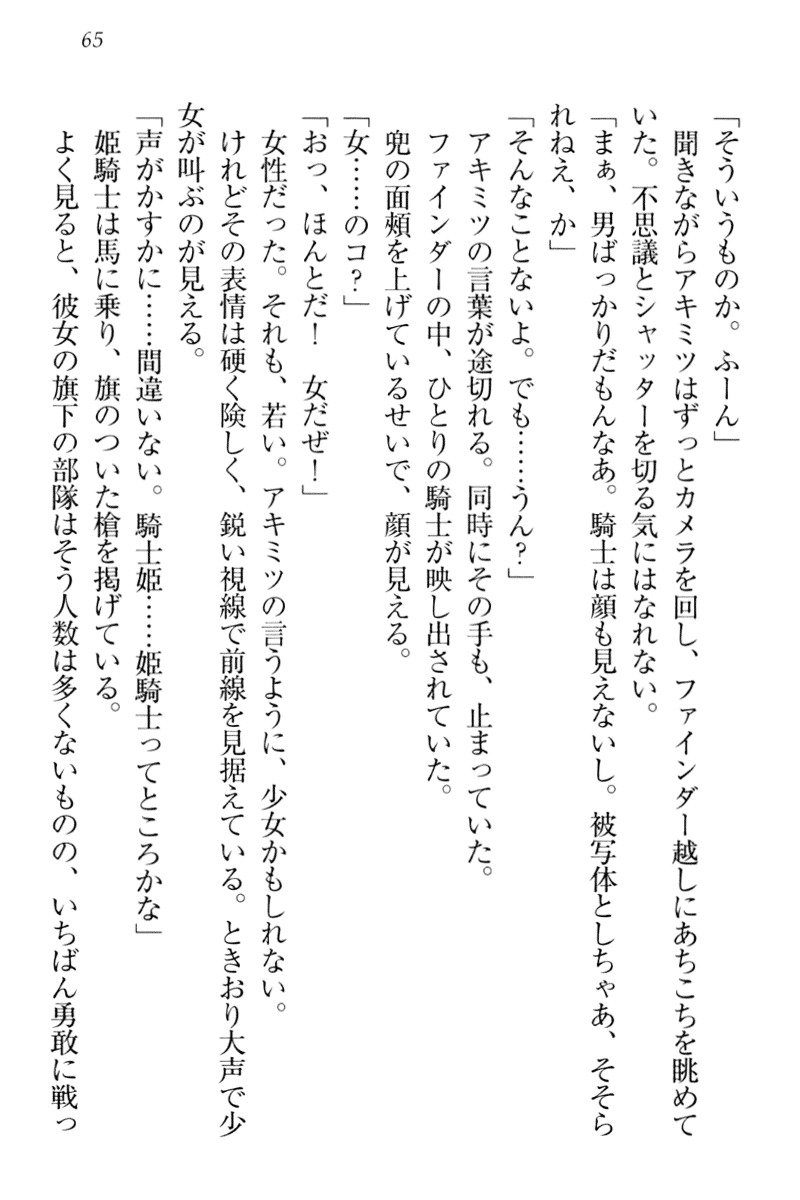 65
「そういうものか。ふーん」
聞きながらアキミツはずっとカメラを回し、ファインダー越しにあちこちを眺めて
いた。不思議とシャッターを切る気にはなれない。
「まぁ、男ばっかりだもんなあ。騎士は顔も見えないし。被写体としちゃあ、そそら
れねえ、か」
「そんなことないよ。でも……うん？」
アキミツの言葉が途切れる。同時にその手も、止まっていた。
ファインダーの中、ひとりの騎士が映し出されていた。
兜の面頬を上げているせいで、顔が見える。
「女……のコ？」
「おっ、ほんとだ！　女だぜ！」
女性だった。それも、若い。アキミツの言うように、少女かもしれない。
けれどその表情は硬く険しく、鋭い視線で前線を見据えている。ときおり大声で少
女が叫ぶのが見える。
「声がかすかに……間違いない。騎士姫……姫騎士ってところかな」
姫騎士は馬に乗り、旗のついた槍を掲げている。
よく見ると、彼女の旗下の部隊はそう人数は多くないものの、いちばん勇敢に戦っ